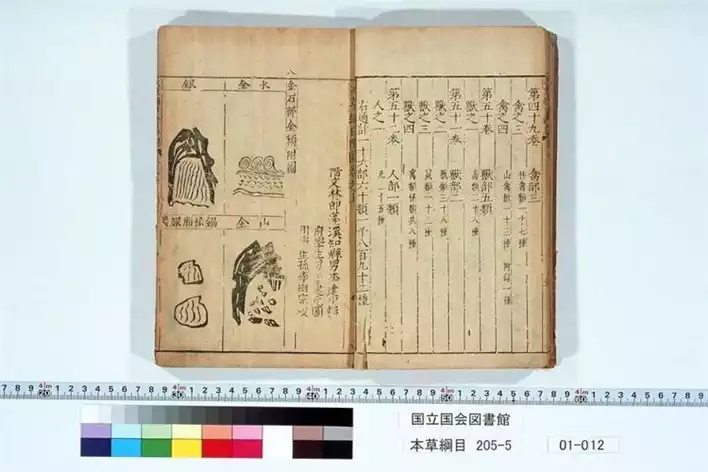 第四十九卷 禽部三
禽之三 林禽類一十七種
禽之四 山禽類一十三種 附錄一種
第五十卷 獸部五類
獸之一 畜類二十八種
第五十一卷 獸部二
獸之二 獸類三十八種
獸之三 鼠類一十二種
獸之四 寓類怪類共八種
第五十二卷 人部一類
人之一 凡三十五種
右通計一十六部六十類一千八百九十二種
階文林郎蓬溪知縣男李建中輯
府學生男李建元圖
州學生孫李樹宗校
金石部金類附圖
水金
銀
山金
国立国会図書館
本草綱目 205-5
01-012